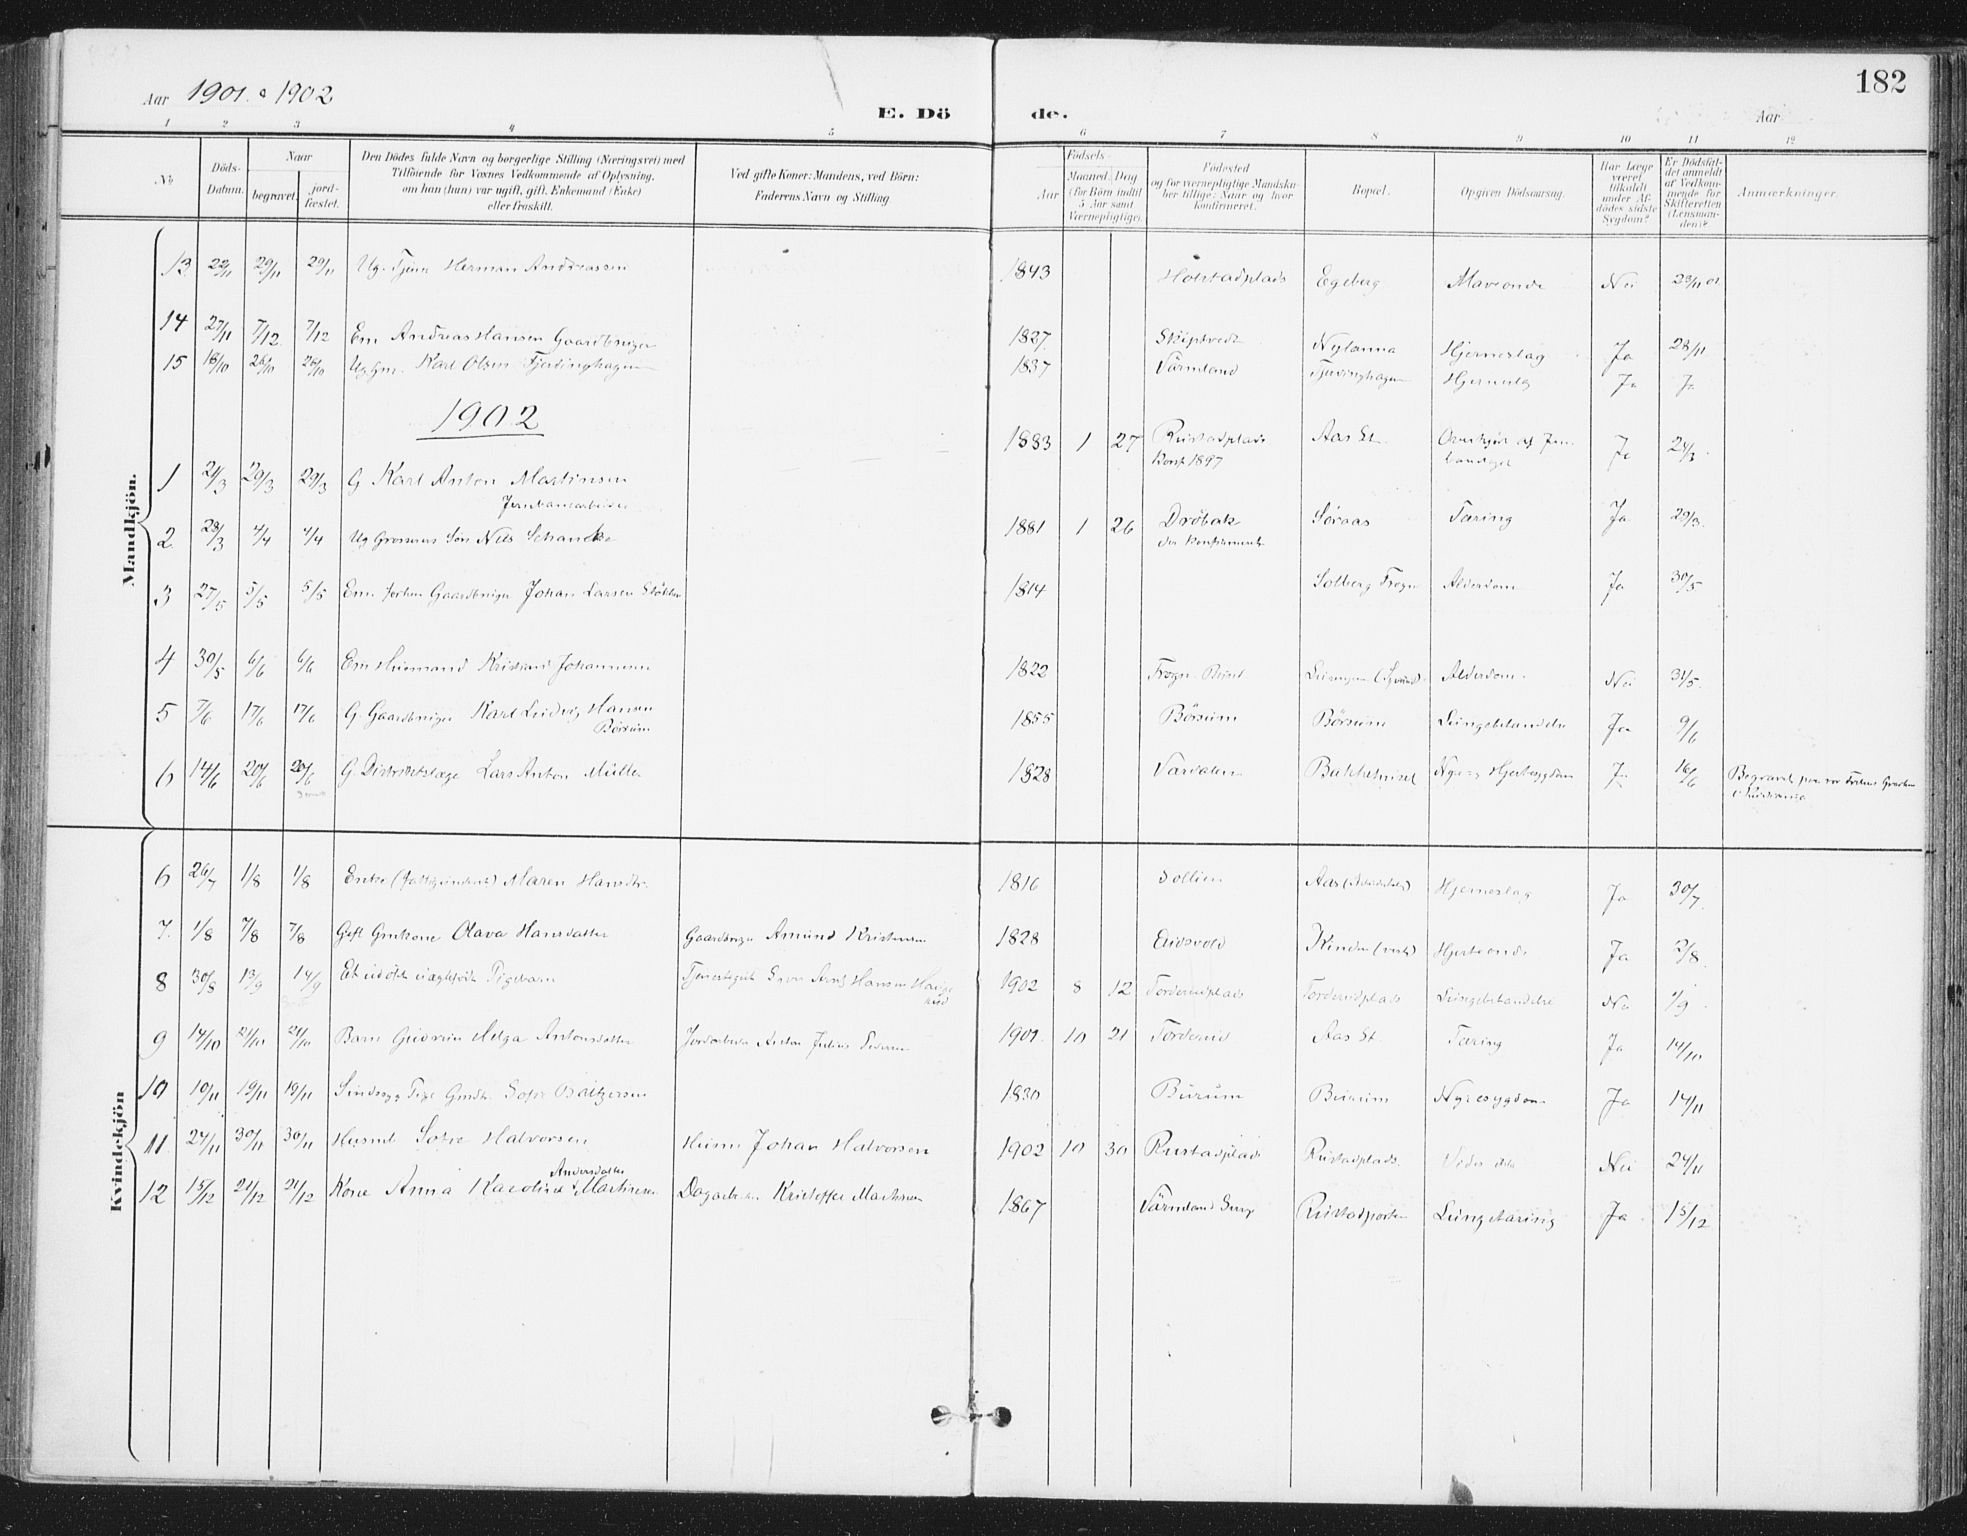 182
Aar 1901 & 1902
E. Dö de.
Aar
1 2 3 4 5 6 7 8 9 10 11 12
No
Döds-Datum.
Naar
begravet.
jord-fæstet.
Den Dödes fulde Navn og borgerlige Stilling (Næringsvei) med
Tilföiende for Voxnes Vedkommende af Oplysning,
om han (hun) var ugift, gift, Enkemand (Enke)
eller fraskilt.
Ved gifte Koner: Mandens, ved Börn:
Faderens Navn og Stilling.
Födsels-
Aar
Maaned. Dag
(for Börn indtil
5 Aar samt
Værnepligtige).
Födested
og for værnepligtige Mandska-
ber tillige: Naar og hvor
konfirmeret.
Bopæl.
Opgiven Dödsaarsag.
Har Læge
været
tilkaldt
under Af-
dödes sidste
Sygdom?
Er Dödsfal-
det anmeldt
af Vedkom-
mende for
Skifteretten
(Lensman-
den)?
Anmærkninger.
Mandkjön.
13 22/11 29/11 29/11 Ug. Tjener Herman Andreassen 1843 Holstadplads Egeberg Maveonde Nei 23/11 01
14 27/11 7/12 7/12 Em Andreas Hansen Gaardbruger 1827 Skiptvedt Nylanna Hjerneslag Ja 28/11
15 18/10 26/10 26/10 Ug. Gm. Karl Olsen Fjerdinghagen 1837 Värmland Fjerdinghagen Hjerneslag Ja Ja
1902
1 21/3 29/3 29/3 G Karl Anton Martinsen 1883 1 27 Rustadplads Aas St. Overkjört af Jern- Ja 24/3
Jernbanearbeider Konf 1897 banetog
2 28/3 4/4 4/4 Ug Grosserers Sön Nils Schancke 1881 1 26 Dröbak Söraas Tæring Ja 29/3
der konfirmeret
3 27/5 5/5 5/5 Em. forhen Gaardbruger Johan Larsen 1814 Solberg Frogn Alderdom Ja 30/5
4 30/5 6/6 6/6 Em Huusmand Kristian Johannesen 1822 Frogn Alderdom Nei 31/5
5 7/6 17/6 17/6 G. Gaardbruger Karl Ludvig Hansen 1855 Börsum Börsum Lungebetændelse Ja 9/6
Börsum
6 14/6 20/6 20/6 G. Distriktslæge Lars Anton Müller 1828 Værdalen Bakkehuset Nyre og Hjertesygdom Ja 16/6 Begravet paa vor Frelsers Gravlund
i Kristiania
Kvindekjön
6 26/7 1/8 1/8 Enke (fattigunderst) Maren Hansdtr. 1816 Sollien Aas Hjerneslag Ja 30/7
7. 1/8 7/8 7/8 Gift Gmkone Olava Hansdatter Gaardbruger Amund Kristensen 1828 Eidsvold Kinden (vestre) Hjerteonde Ja 2/8
8 30/8 13/9 14/9 Et udöbt uægtefödt Pigebarn Tjenestegut Hansen 1902 8 12 Torderudplads Torderudplads Lungebetændelse Nei 1/9
9 14/10 21/10 21/10 Barn Gudrun Helga Antonsdatter Jordarbeider Anton Julius Pedersen 1901 10 21 Torderud Aas St. Tæring Ja 14/10
10 10/11 19/11 19/11 Sindssyg Pige Gmdtr. Sofie Baltzersen 1830 Burum Burum Nyresygdom Ja 14/11
11. 24/11 30/11 30/11 Husmd Sofie Halvorsen Husm Johan Halvorsen 1902 10 30 Rustadplads Rustadplads Nei 24/11
12 15/12 21/12 21/12 Kone Anna Karoline Andersdatter Martinsen Dagarb. Kristoffer Martinsen 1867 Värmland Rustadporten Lungetæring Ja 15/12